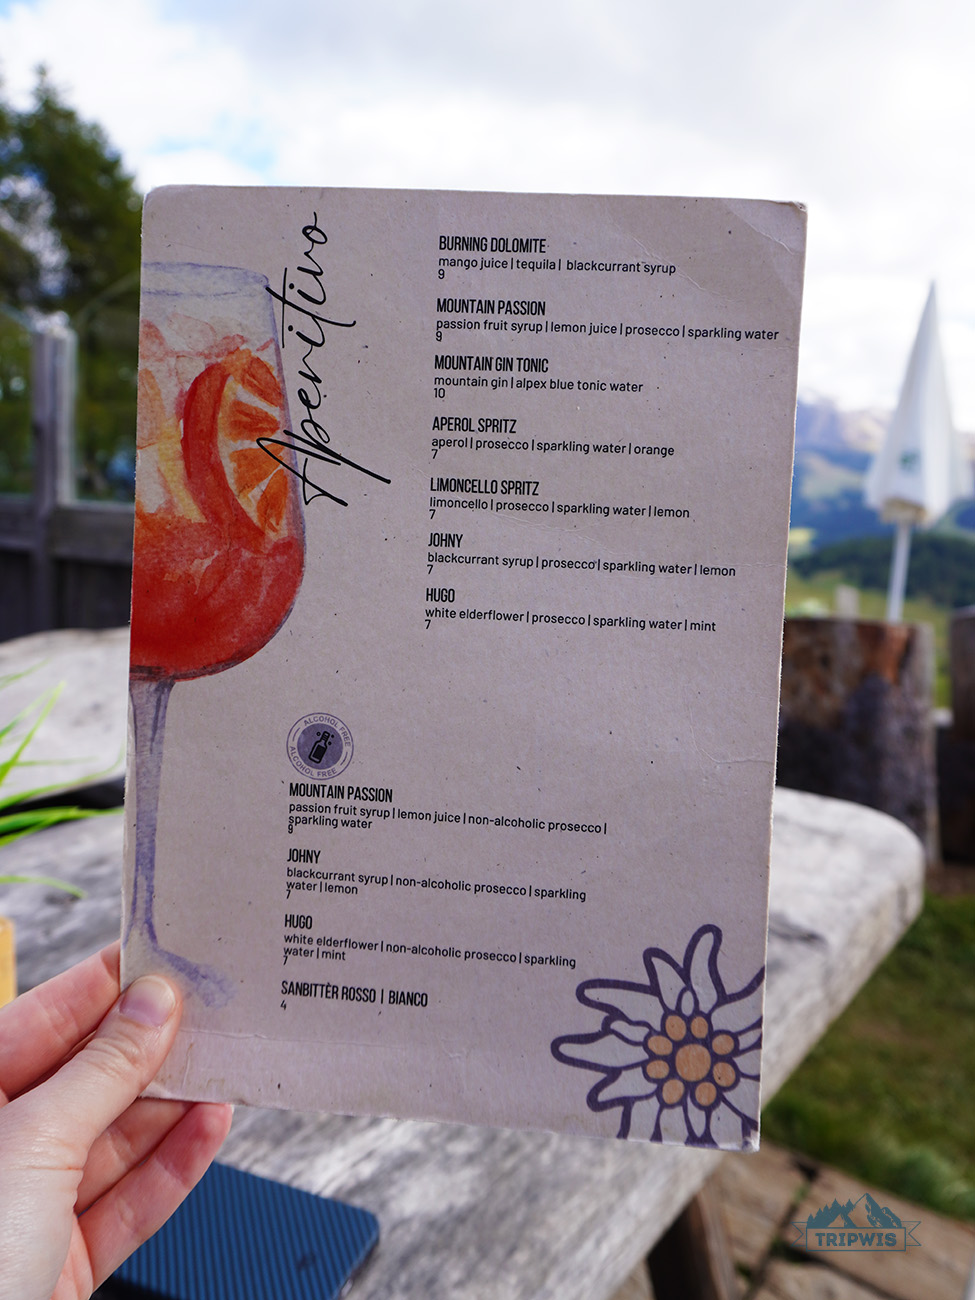 Aperitivo
BURNING DOLOMITE
mango juice | tequila | blackcurrant syrup
9
MOUNTAIN PASSION
passion fruit syrup | lemon juice | prosecco | sparkling water
9
MOUNTAIN GIN TONIC
mountain gin | alpex blue tonic water
10
APEROL SPRITZ
aperol | prosecco | sparkling water | orange
7
LIMONCELLO SPRITZ
limoncello | prosecco | sparkling water | lemon
7
JOHNY
blackcurrant syrup | prosecco | sparkling water | lemon
7
HUGO
white elderflower | prosecco | sparkling water | mint
7
ALCOHOL FREE
ALCOHOL FREE
MOUNTAIN PASSION
passion fruit syrup | lemon juice | non-alcoholic prosecco |
sparkling water
9
JOHNY
blackcurrant syrup | non-alcoholic prosecco | sparkling
water | lemon
7
HUGO
white elderflower | non-alcoholic prosecco | sparkling
water | mint
7
SANBITTÈR ROSSO | BIANCO
4
TRIPWIS